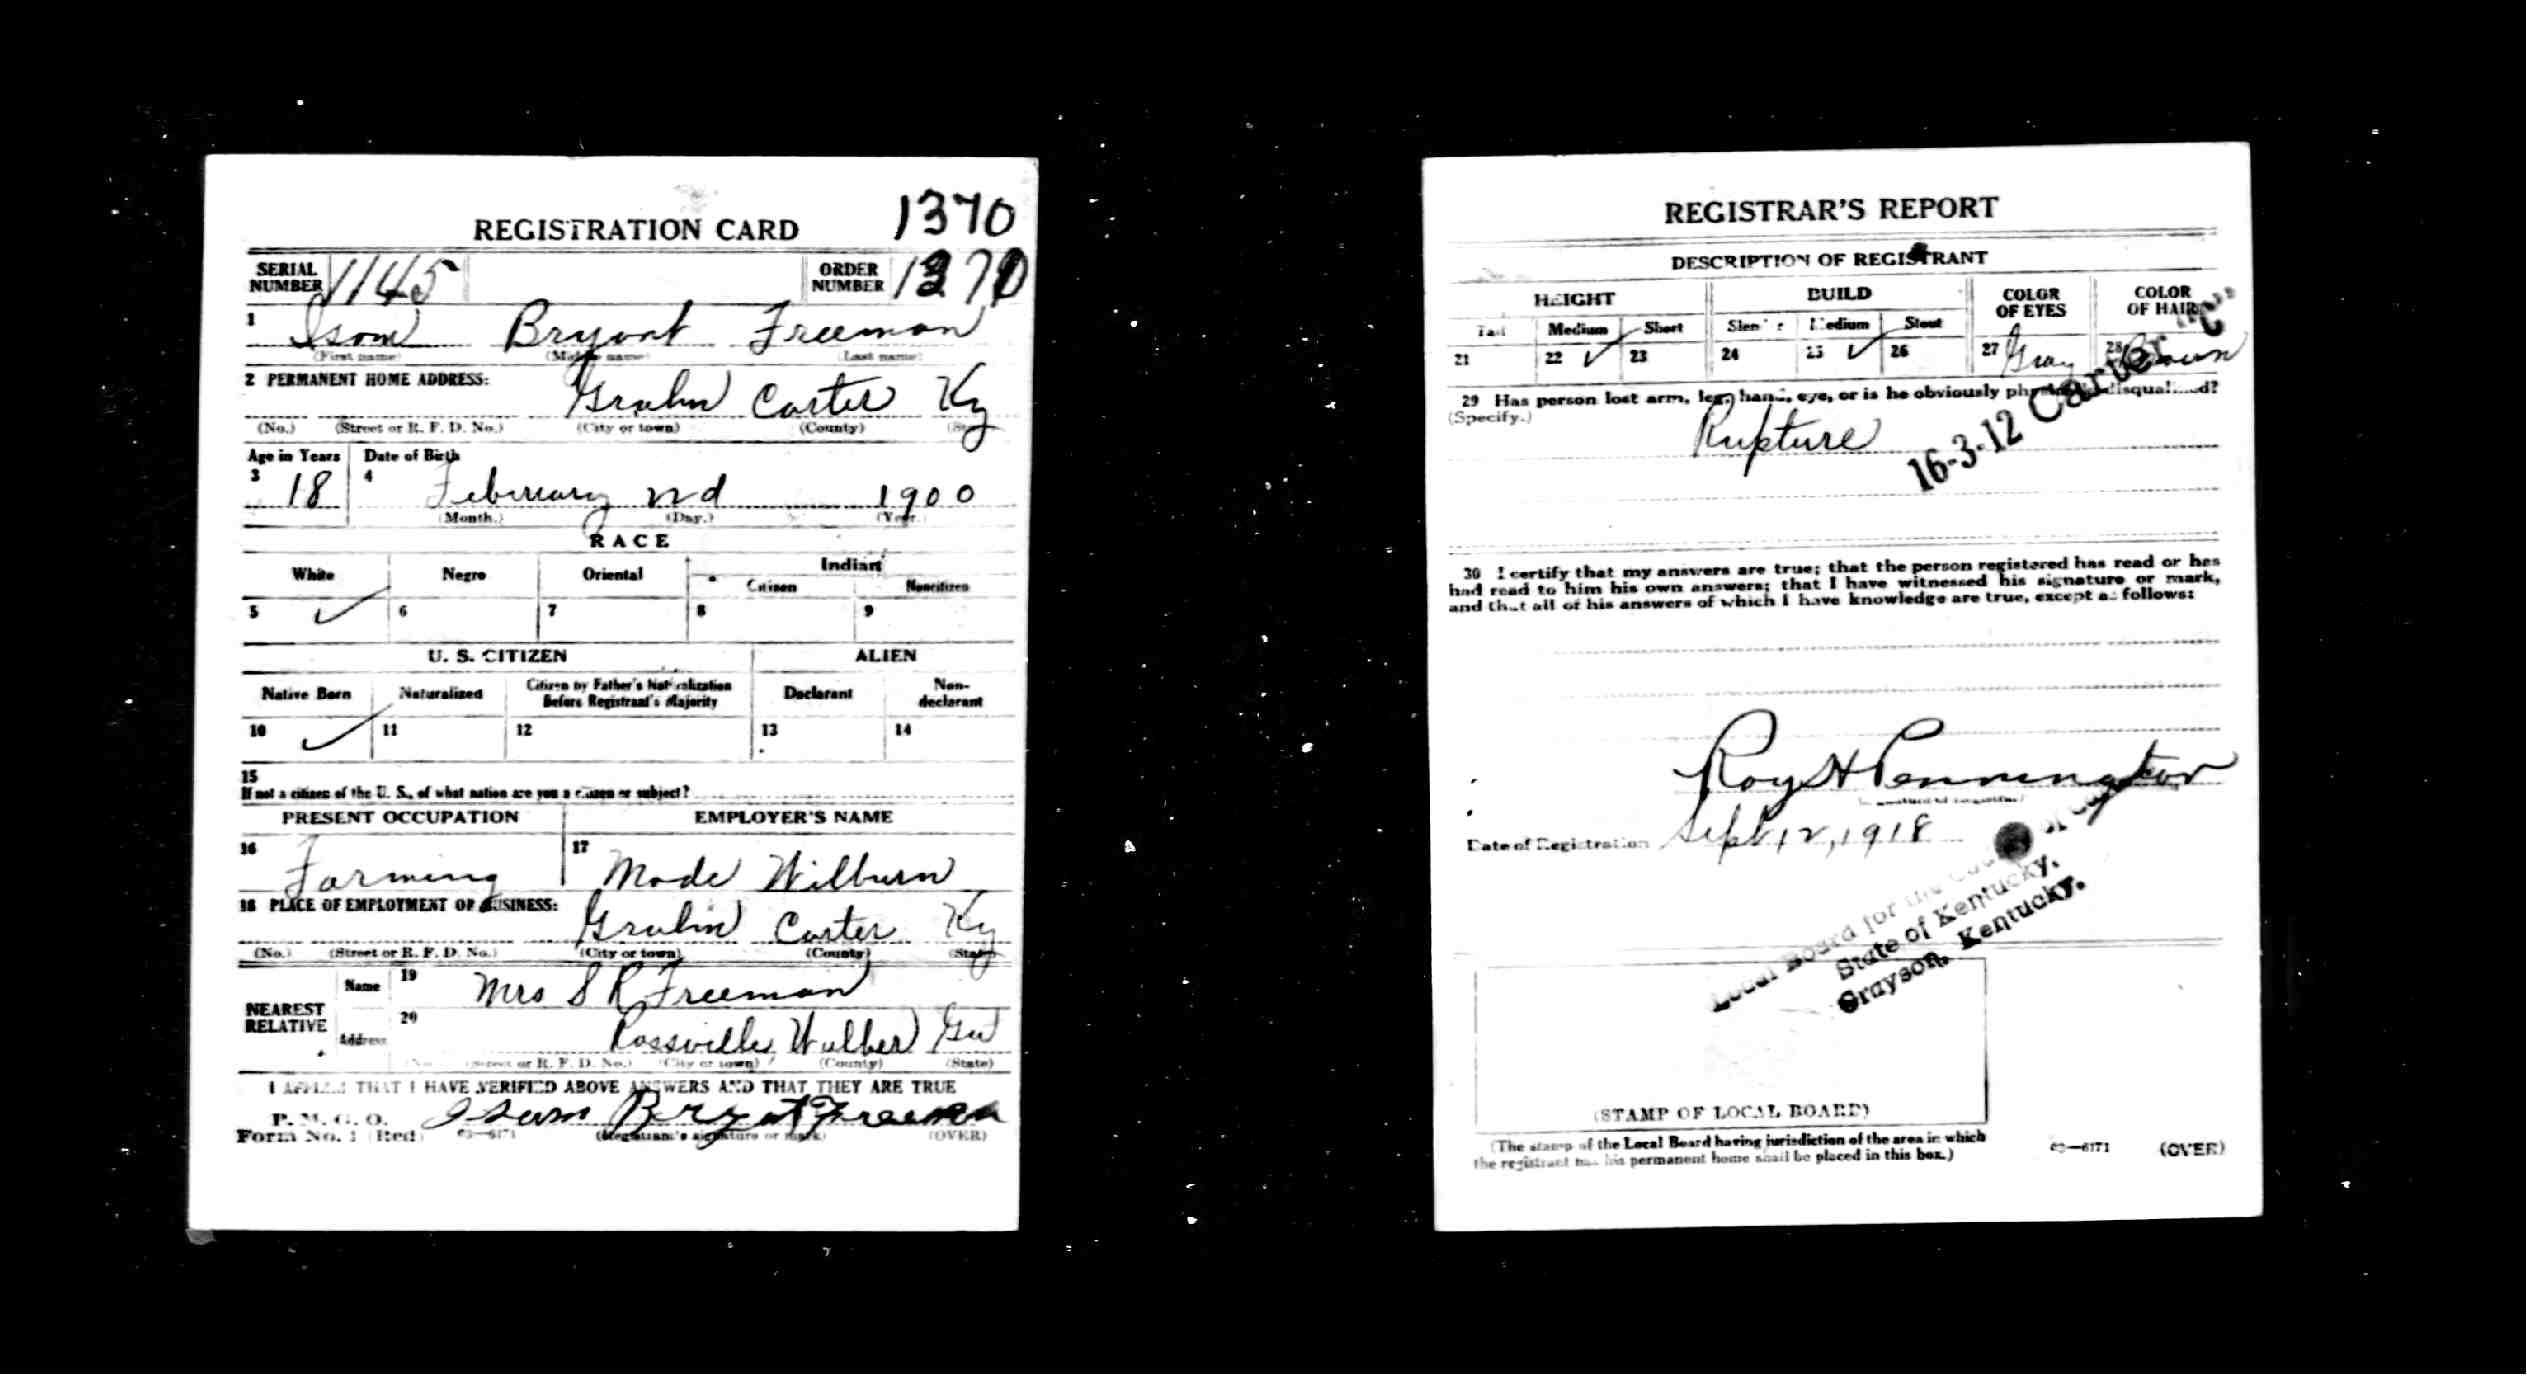 REGISTRATION CARD 1370
SERIAL NUMBER 1145 ORDER NUMBER 1370
1 Isom Bryant Freeman
(First name) (Middle name) (Last name)
2 PERMANENT HOME ADDRESS: Grahn Carter Ky
(No.) (Street or R. F. D. No.) (City or town) (County) (State)
Age in Years Date of Birth
3 18 4 February 2nd 1900
(Month.) (Day.) (Year.)
RACE
White Negro Oriental Indian
Citizen Noncitizen
5 ✓ 6 7 8 9
U. S. CITIZEN ALIEN
Native Born Naturalized Citizen by Father's Naturalization Before Registrant's Majority Declarant Non-declarant
10 ✓ 11 12 13 14
15
If not a citizen of the U. S., of what nation are you a citizen or subject?
PRESENT OCCUPATION EMPLOYER'S NAME
16 Farming 17 Mode Wilburn
18 PLACE OF EMPLOYMENT OR BUSINESS: Grahn Carter Ky
(No.) (Street or R. F. D. No.) (City or town) (County) (State)
NEAREST RELATIVE Name 19 Mrs S R Freeman
Address 20 Rossville Walker
(No.) (Street or R. F. D. No.) (City or town) (County) (State)
I AFFIRM THAT I HAVE VERIFIED ABOVE ANSWERS AND THAT THEY ARE TRUE
P. M. G. O.
Form No. 1 (Red) 03—6171 Isom Bryat Freeman
(Registrant's signature or mark) (OVER)
REGISTRAR'S REPORT
DESCRIPTION OF REGISTRANT
HEIGHT BUILD COLOR OF EYES COLOR OF HAIR
Tall Medium Short Slender Medium Stout
21 22 ✓ 23 24 25 ✓ 26 27 Gray 28 Brown
29 Has person lost arm, leg, hand, eye, or is he obviously physically disqualified?
(Specify.) Rupture
16-3-12 Carter
30 I certify that my answers are true; that the person registered has read or has
had read to him his own answers; that I have witnessed his signature or mark,
and that all of his answers of which I have knowledge are true, except as follows:
Roy H Pennington
(Signature of registrar)
Date of Registration Sept 12, 1918
Local Board for the County of Carter
State of Kentucky.
Grayson, Kentucky.
(STAMP OF LOCAL BOARD)
(The stamp of the Local Board having jurisdiction of the area in which
the registrant has his permanent home shall be placed in this box.) 03—6171 (OVER)